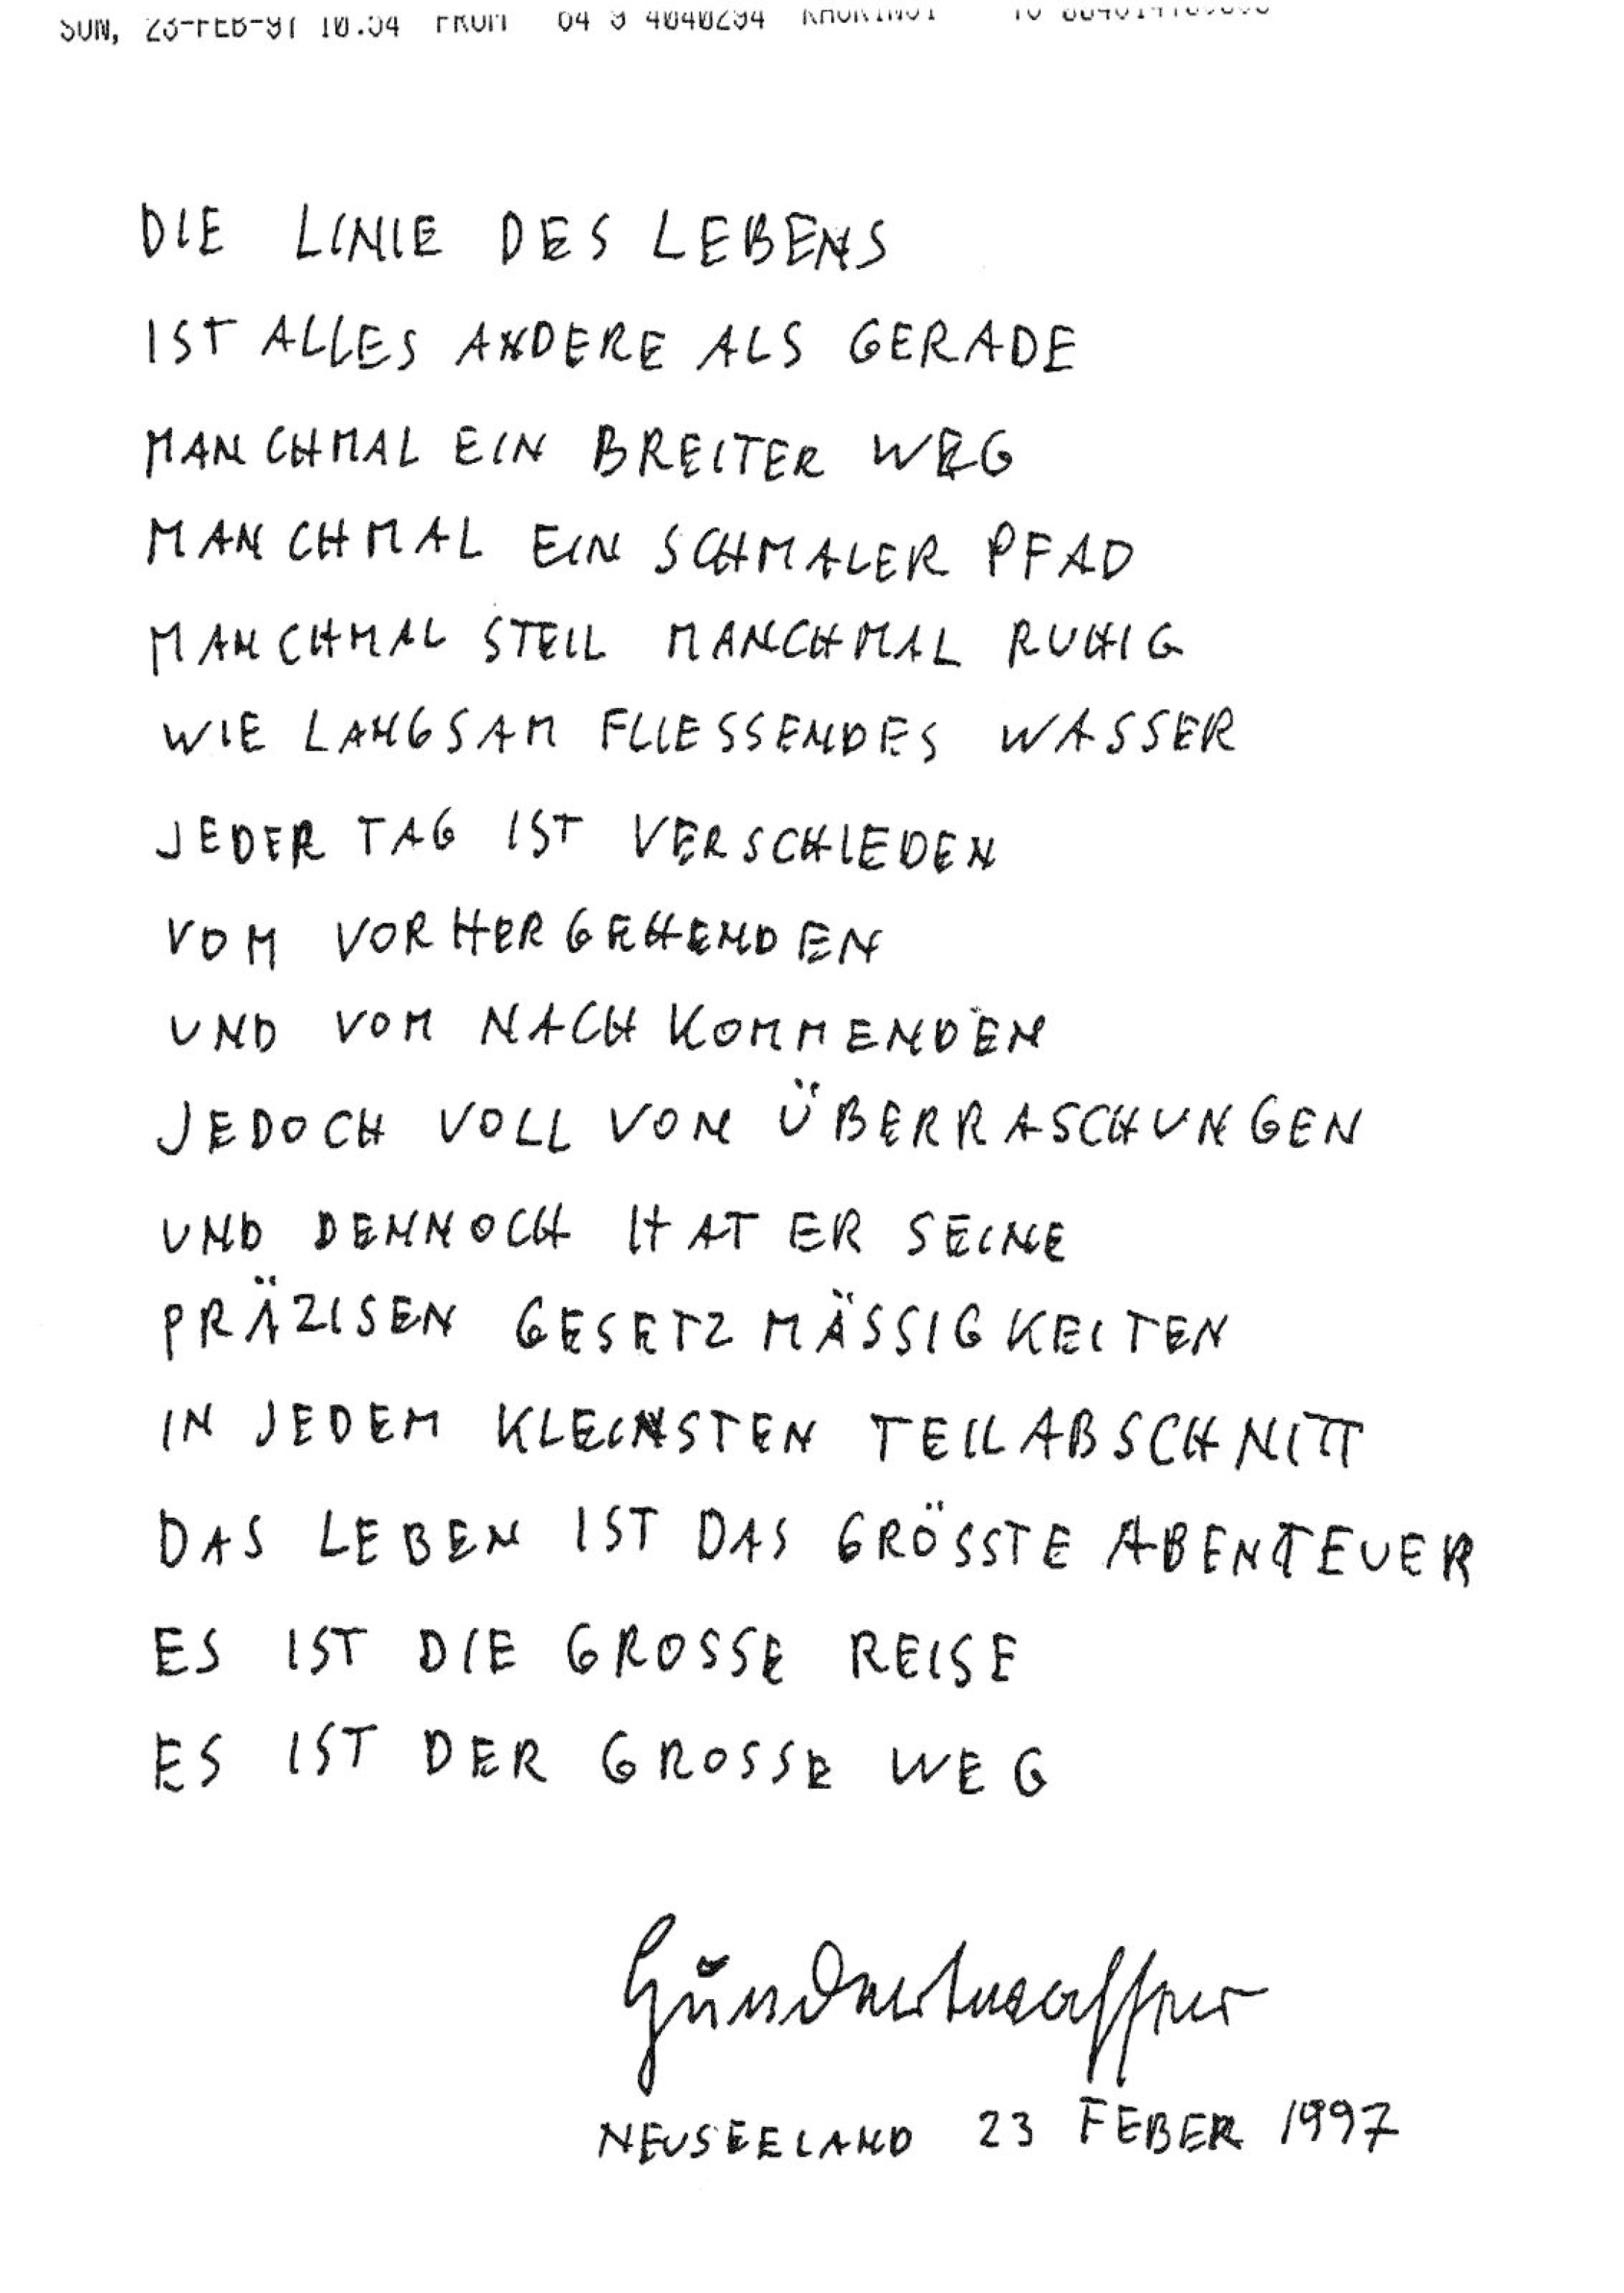 SUN, 23-FEB-97 10:54 FROM 64 9 4040294
DIE LINIE DES LEBENS
IST ALLES ANDERE ALS GERADE
MANCHMAL EIN BREITER WEG
MANCHMAL EIN SCHMALER PFAD
MANCHMAL STEIL MANCHMAL RUHIG
WIE LANGSAM FLIESSENDES WASSER
JEDER TAG IST VERSCHIEDEN
VOM VORHERGEHENDEN
UND VOM NACHKOMMENDEN
JEDOCH VOLL VON ÜBERRASCHUNGEN
UND DENNOCH HAT ER SEINE
PRÄZISEN GESETZMÄSSIGKEITEN
IN JEDEM KLEINSTEN TEILABSCHNITT
DAS LEBEN IST DAS GRÖSSTE ABENTEUER
ES IST DIE GROSSE REISE
ES IST DER GROSSE WEG
Hundertwasser
NEUSEELAND 23 FEBER 1997